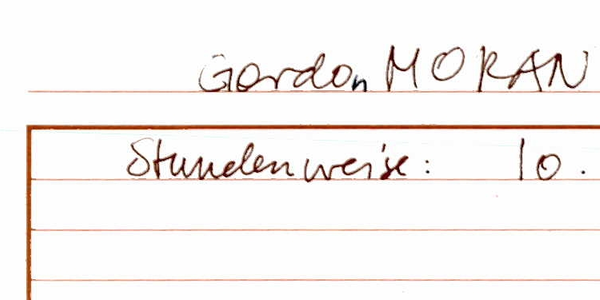 Gordon MORAN
Stundenweise: 10.